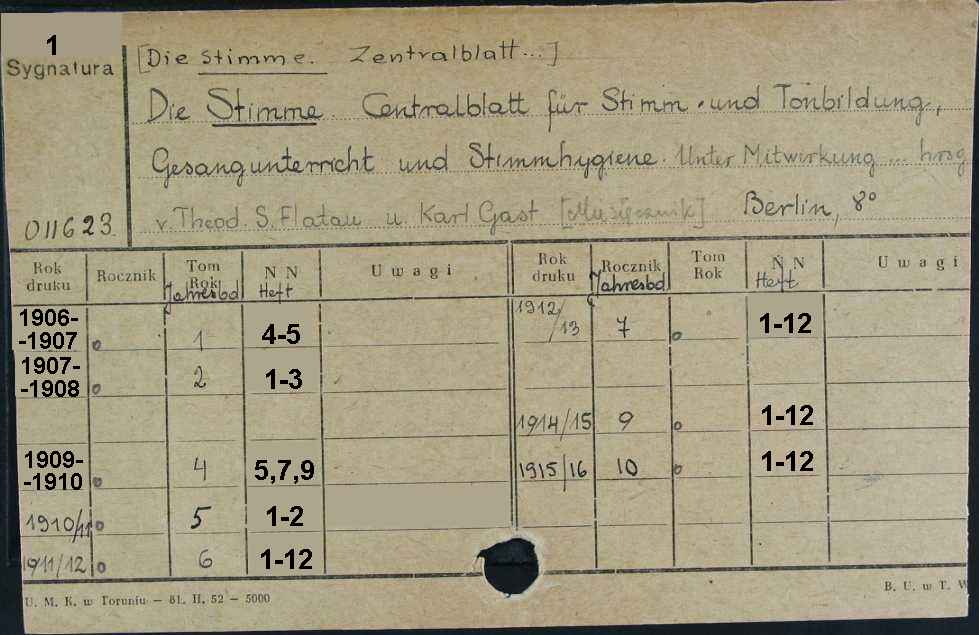 1
Sygnatura
[Die Stimme. Zentralblatt...]
Die Stimme Centralblatt für Stimm- und Tonbildung,
Gesangunterricht und Stimmhygiene. Unter Mitwirkung ... hrsg
v. Theod. S. Flatau u. Karl Gast [Miesięcznik] Berlin, 8°
011623.
Rok druku Rocznik Tom Rok Jahresbd N N Heft Uwagi
1906--1907 o 1 4-5
1907--1908 o 2 1-3
1909--1910 o 4 5,7,9
1910/11 o 5 1-2
1911/12 o 6 1-12
Rok druku Rocznik Jahresbd Tom Rok N N Heft Uwagi
1912/13 7 o 1-12
1914/15 9 o 1-12
1915/16 10 o 1-12
U. M. K. w Toruniu — 81. II. 52 — 5000
B. U. w T. W